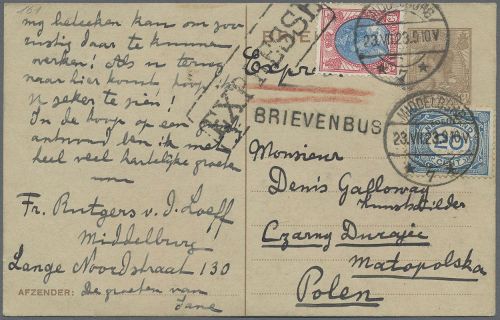 181
my beteeken kan om zoo
rustig daar te kunnen
werken! Als u terug
naar hier komt hoop ik
u zeker te zien!
In de hoop op een
antwoord ben ik met
heel veel hartelijke groeten
Fr. Rutgers v. d. Loeff
Middelburg
Lange Noordstraat 130
AFZENDER: De groeten van
Jane
EXPRESSE
Expres
BRIEVENBUS
MIDDELBURG
23.VII.23.9-10V
7
MIDDELBURG
23.VII.23.9-10V
7
20
Monsieur
Denis Galloway
Kunstschilder
Czarny Dunajec
Małopolska
Polen